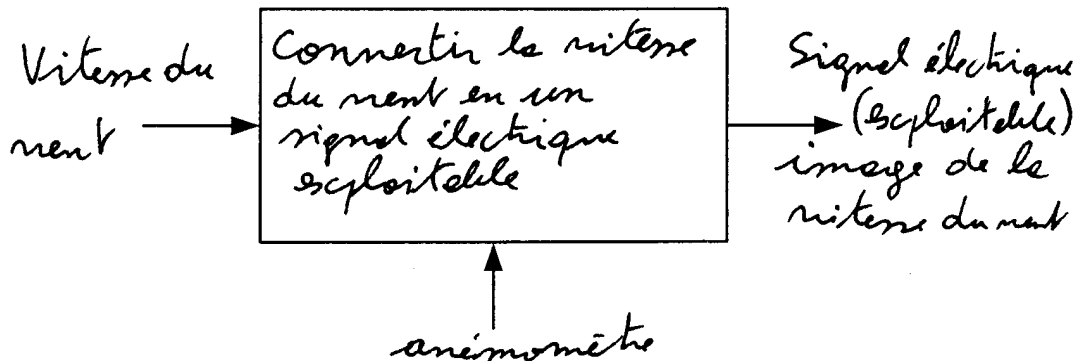 Vitesse du
vent
Convertir la vitesse
du vent en un
signal électrique
exploitable
Signal électrique
(exploitable)
image de la
vitesse du vent
anémomètre